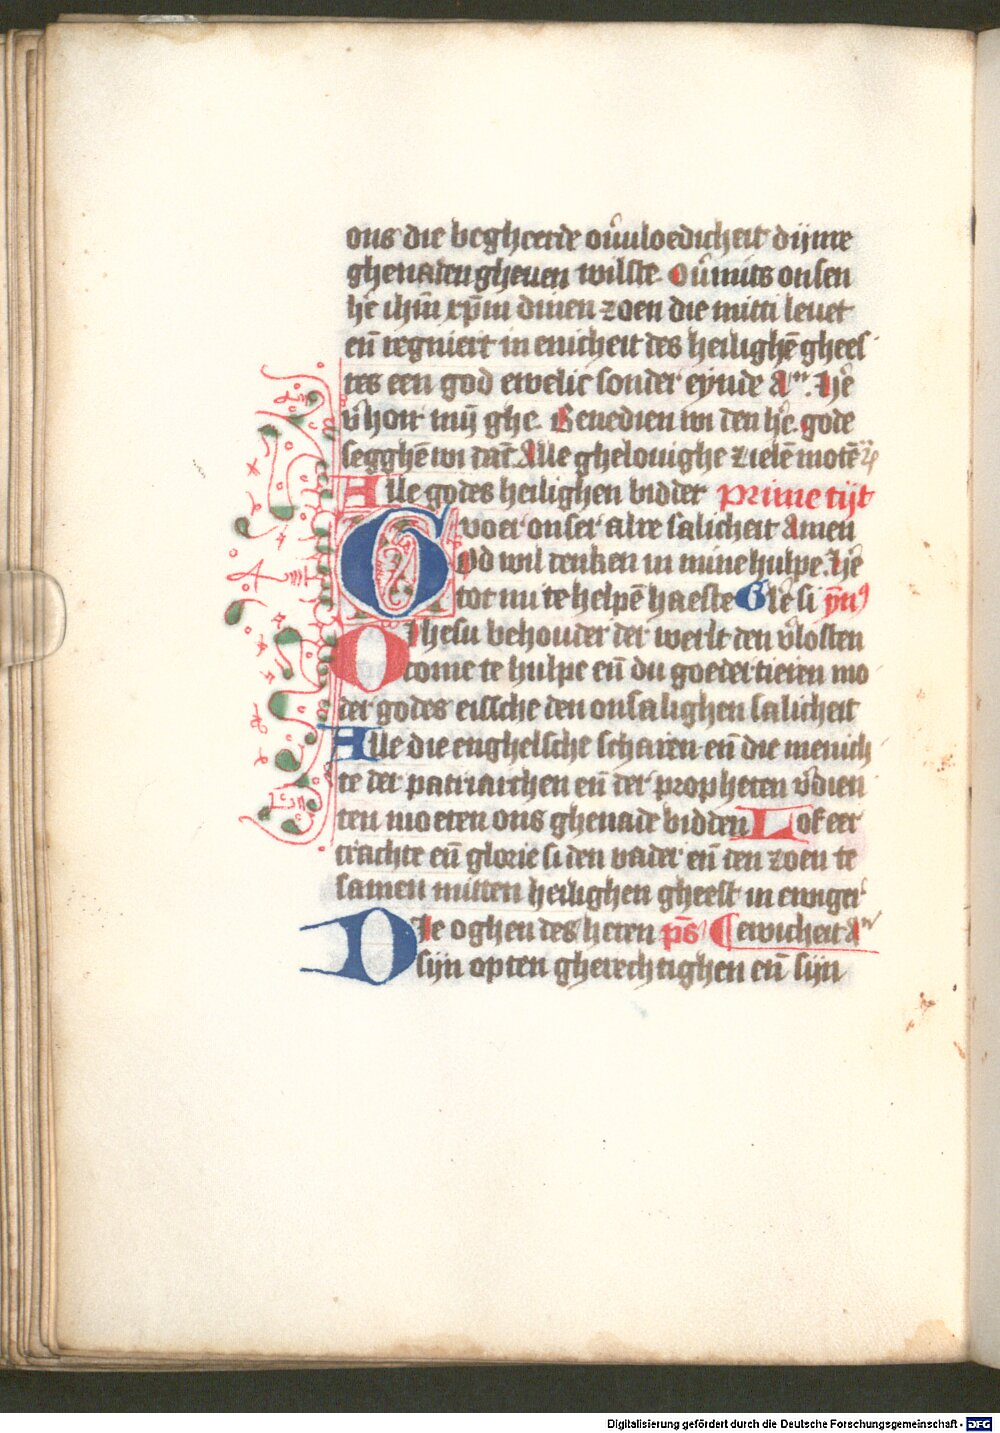 ons die begheerde ou̾uloedicheit dijnre
ghenaden gheuen wilste. Ou̾mits onsen
he̾ ihm̄ xp̄m dinen zoen die mitti leuet
en̄ regniert in enicheit des heilighē ghees
tes een god ewelic sonder eynde Aᵐ. He̾
v̾hoir mij ghe. Benedien wi den he̾. gode
segghē wi dāc Alle ghelouighe zielē motē
Alle godes heilighen bidder prime tijt
voer onser alre salicheit Amen
God wil denken in mine hulpe. He̾
tot mi te helpē haeste Gl̾e si ym̄ꝰ
O Ihesu behouder der werlt den v̾losten
come te hulpe en̄ du goedertieren mo
der godes eissche den onsalighen salicheit
Alle die enghelsche scharen en̄ die menich
te der patriarchen en̄ der propheten v̾dien
ten moeten ons ghenade bidden Lof eer
crachte en̄ glorie si den vader en̄ den zoen te
samen mitten heilighen gheest in ewiger
Die oghen des heren ps̄ ewicheit Aᵐ
sijn opten gherechtighen en̄ sijn
Digitalisierung gefördert durch die Deutsche Forschungsgemeinschaft - DFG